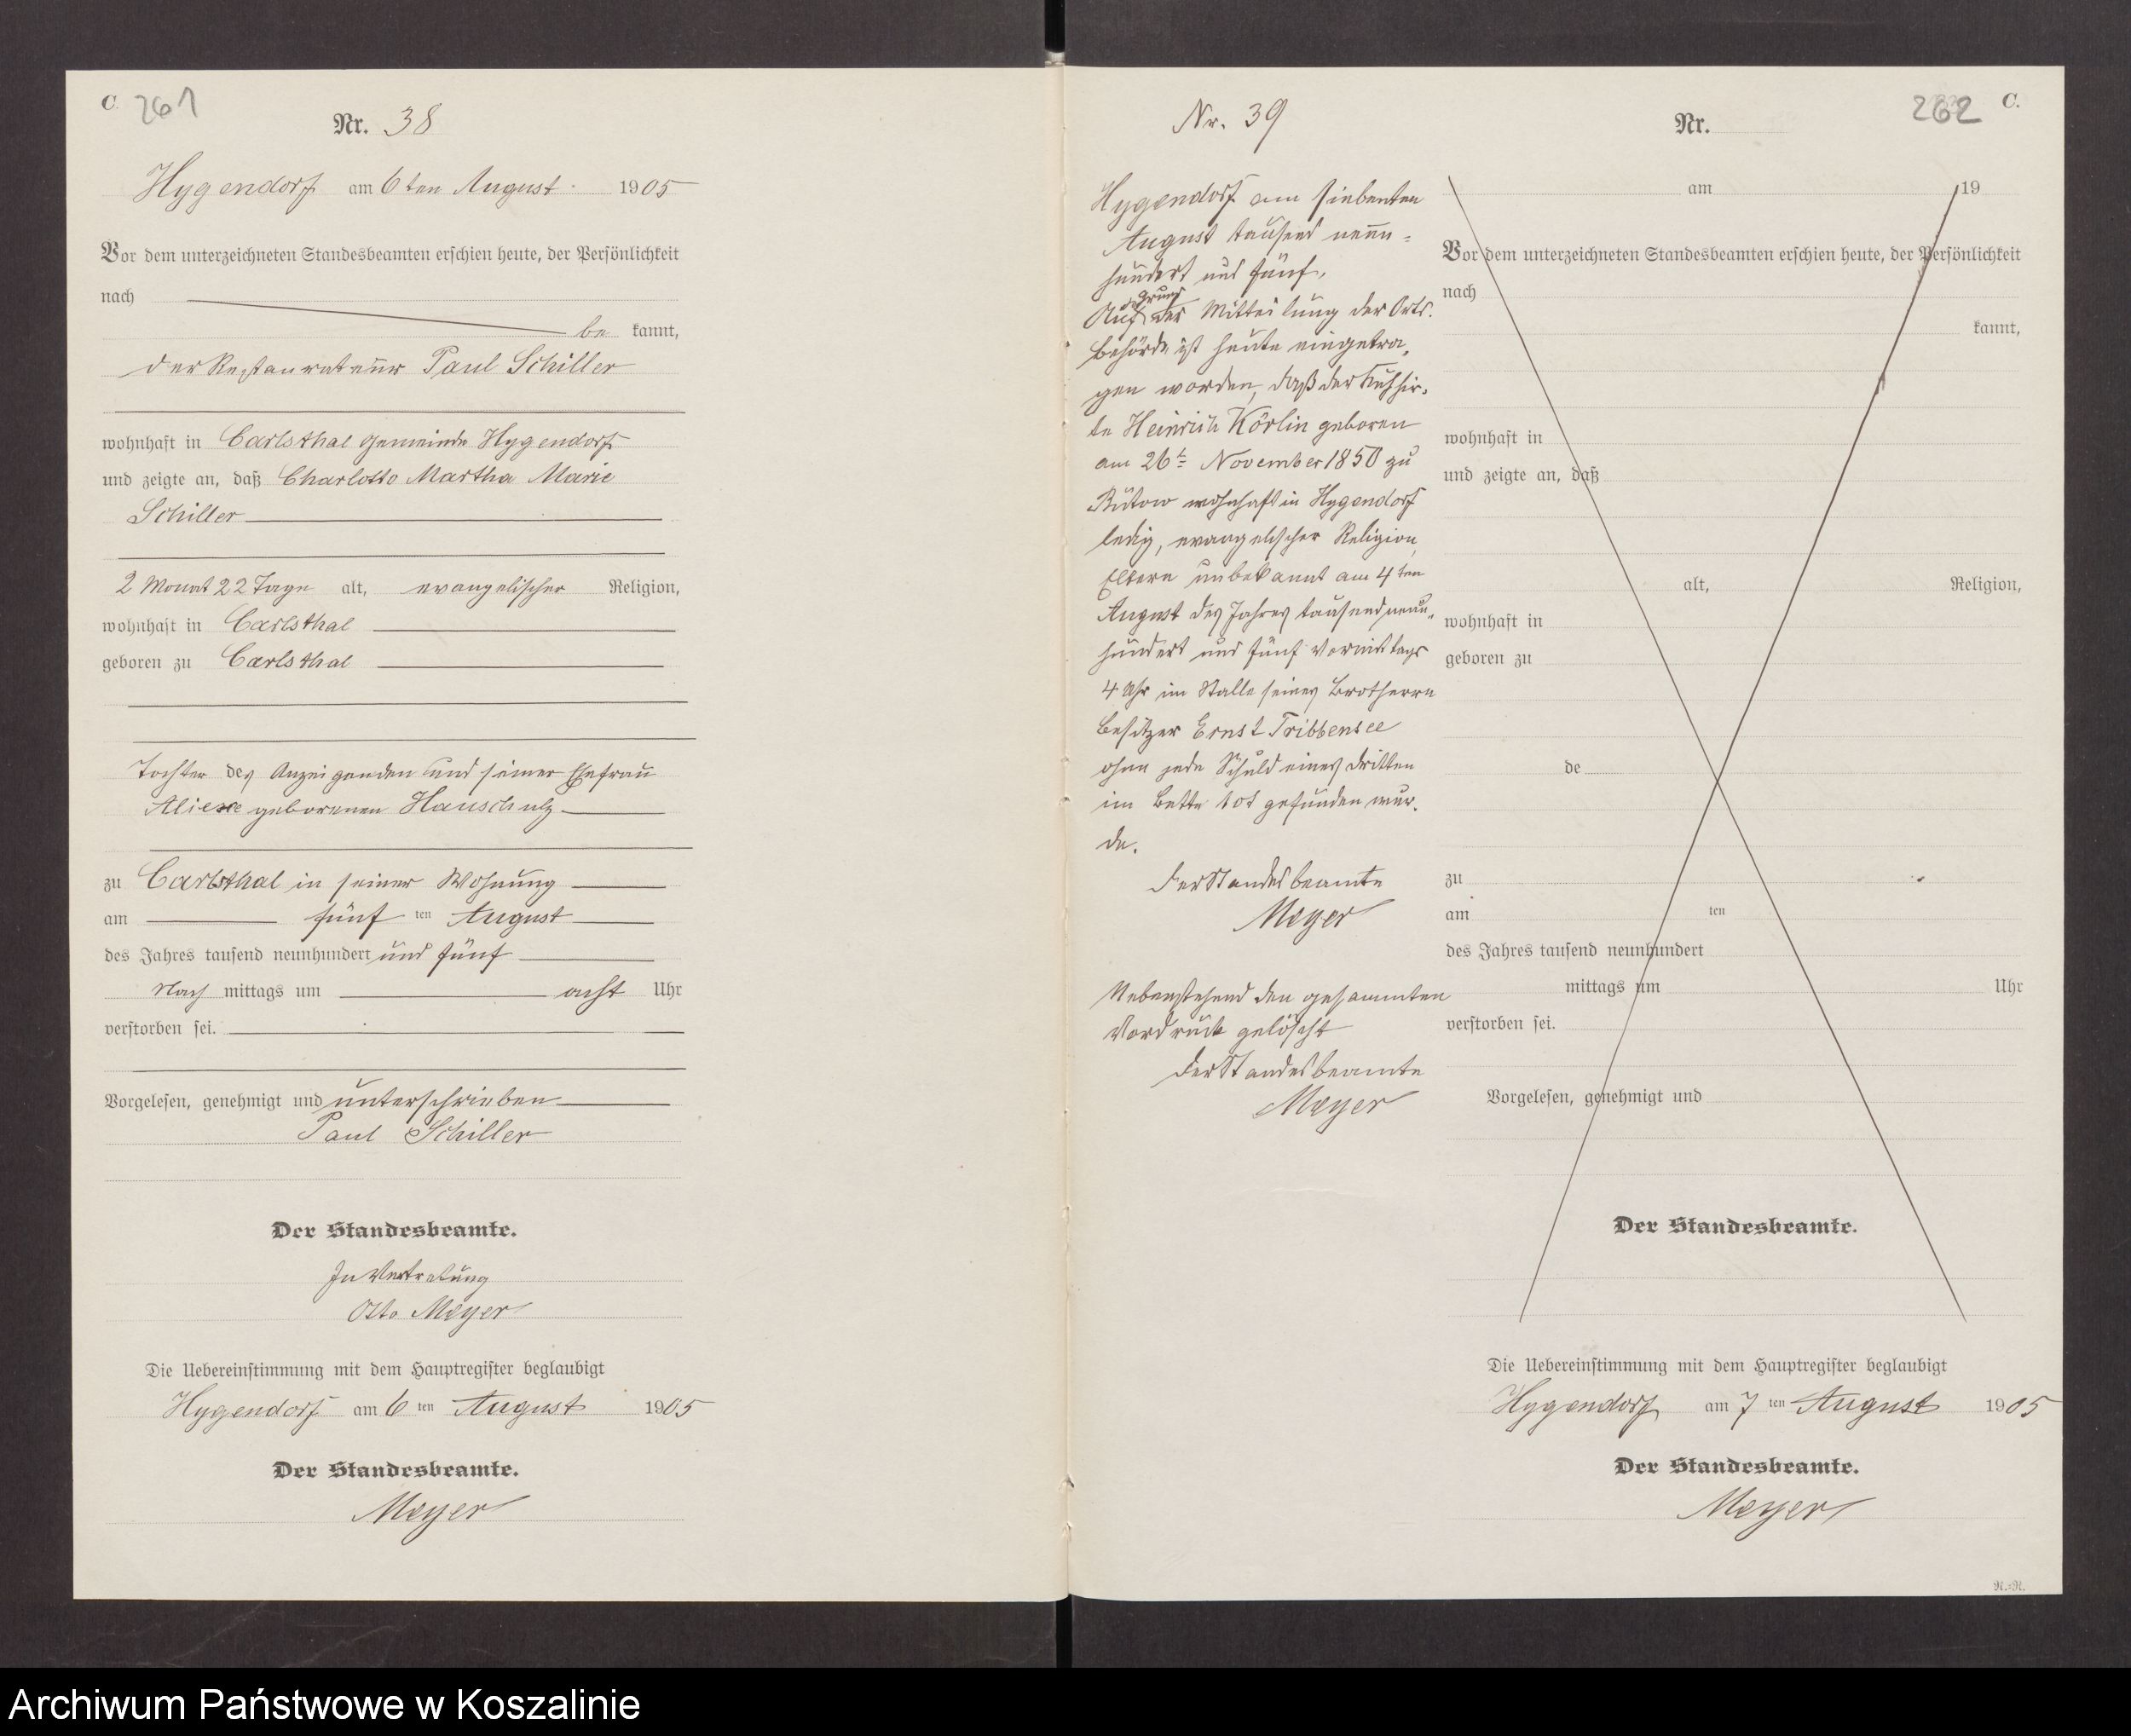 C. 261
Nr. 38
Hygendorf am 6ten August 1905
Vor dem unterzeichneten Standesbeamten erschien heute, der Persönlichkeit
nach
be kannt,
der Restaurateur Paul Schiller
wohnhaft in Carlsthal Gemeinde Hygendorf
und zeigte an, daß Charlotte Martha Marie
Schiller
2 Monat 22 Tage alt, evangelischer Religion,
wohnhaft in Carlsthal
geboren zu Carlsthal
Tochter des Anzeigenden und seiner Ehefrau
geborenen Hauschulz
zu Carlsthal in seiner Wohnung
am fünf ten August
des Jahres tausend neunhundert und fünf
Nach mittags um acht Uhr
verstorben sei.
Vorgelesen, genehmigt und unterschrieben
Paul Schiller
Der Standesbeamte.
In Vertretung
Otto Meyer
Die Uebereinstimmung mit dem Hauptregister beglaubigt
Hygendorf am 6 ten August 1905
Der Standesbeamte.
Meyer
Nr. 39
Hygendorf am siebenten
August tausend neun-
hundert und fünf.
Auf Grund der Mitteilung der Orts-
behörde ist heute eingetra-
gen worden, daß der Kuhhir-
te Heinrich Körlin geboren
am 26t November 1850 zu
Bütow wohnhaft in Hygendorf
ledig, evangelischer Religion,
Eltern unbekannt am 4ten
August des Jahres tausend neun-
hundert und fünf Vormittags
4 Uhr im Stalle seines Brotherrn
Besitzer Ernst Tribbensee
ohne jede Schuld eines dritten
im Bette tot gefunden wur-
de.
Der Standesbeamte
Meyer
Nebenstehend den gesammten
Vordruck gelöscht
Der Standesbeamte
Meyer
262 C.
Nr.
am 19
Vor dem unterzeichneten Standesbeamten erschien heute, der Persönlichkeit
nach
kannt,
wohnhaft in
und zeigte an, daß
alt, Religion,
wohnhaft in
geboren zu
de
zu
am ten
des Jahres tausend neunhundert
mittags um Uhr
verstorben sei.
Vorgelesen, genehmigt und
Der Standesbeamte.
Die Uebereinstimmung mit dem Hauptregister beglaubigt
Hygendorf am 7 ten August 1905
Der Standesbeamte.
Meyer
R.=R.
Archiwum Państwowe w Koszalinie